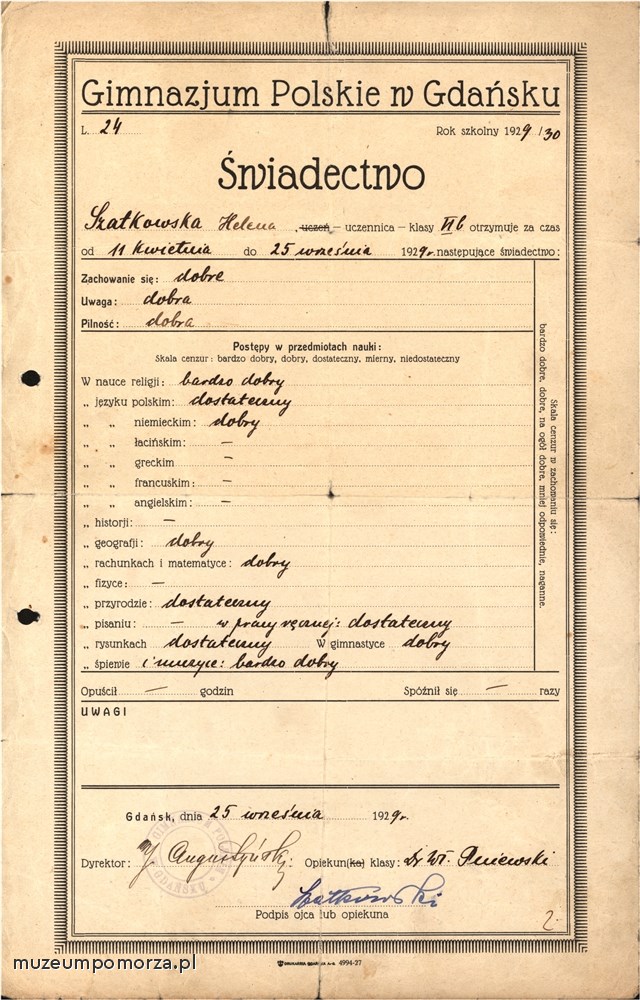 Gimnazjum Polskie w Gdańsku
L. 24 Rok szkolny 1929/30
Świadectwo
Szatkowska Helena, uczeń – uczennica – klasy VIb otrzymuje za czas
od 11 kwietnia do 25 września 1929 r. następujące świadectwo:
Zachowanie się: dobre
Uwaga: dobra
Pilność: dobra
Postępy w przedmiotach nauki:
Skala cenzur: bardzo dobry, dobry, dostateczny, mierny, niedostateczny
W nauce religji: bardzo dobry
„ języku polskim: dostateczny
„ „ niemieckim: dobry
„ „ łacińskim: —
„ „ greckim —
„ „ francuskim: —
„ „ angielskim: —
„ historji: —
„ geografji: dobry
„ rachunkach i matematyce: dobry
„ fizyce: —
„ przyrodzie: dostateczny
„ pisaniu: — w pracy ręcznej: dostateczny
„ rysunkach dostateczny W gimnastyce dobry
„ śpiewie i muzyce: bardzo dobry
Skala cenzur w zachowaniu się:
bardzo dobre, dobre, na ogół dobre, mniej odpowiednie, naganne.
Opuścił — godzin Spóźnił się — razy
UWAGI
Gdańsk, dnia 25 września 1929 r.
Dyrektor: J. Augustyński Opiekun(ka) klasy: Dr Wł. Pniewski
Szatkowski
Podpis ojca lub opiekuna
2.
DRUKARNIA GDAŃSKA A-G 4994-27
muzeumpomorza.pl